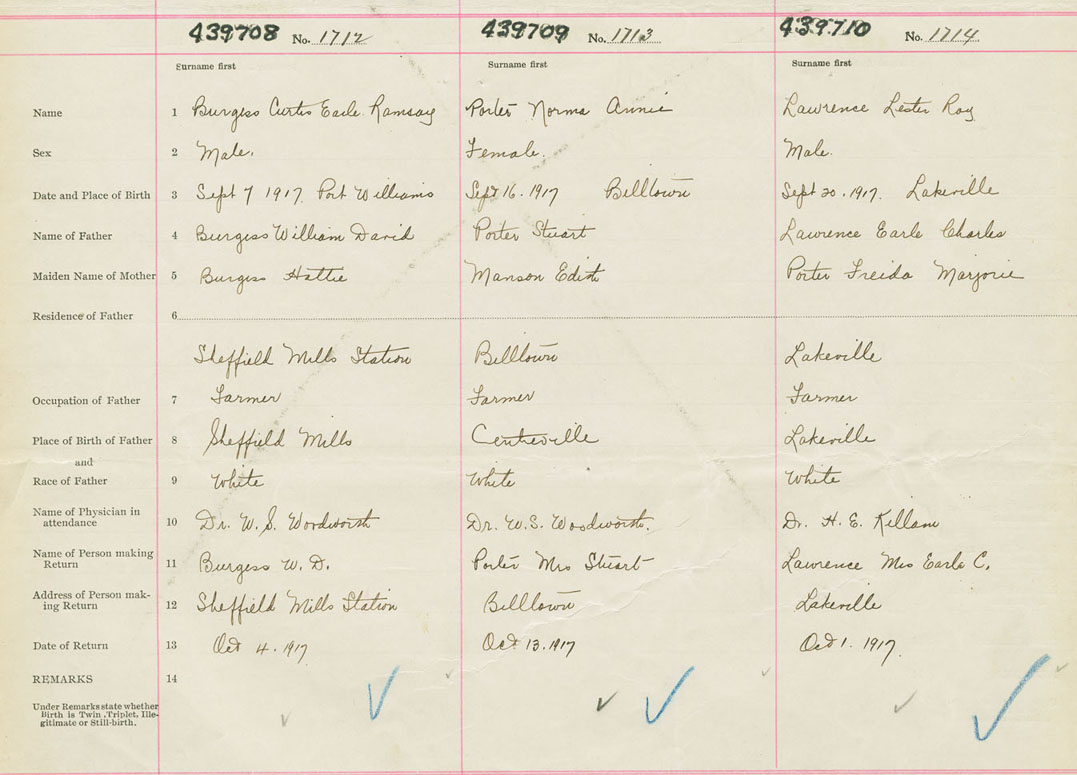 439708 No. 1712 439709 No. 1713 439710 No. 1714
Surname first Surname first Surname first
Name 1 Burgess Curtis Earle Ramsay Porter Norma Annie Lawrence Lester Roy
Sex 2 Male. Female. Male.
Date and Place of Birth 3 Sept 7 1917 Port Williams Sept 16. 1917 Billtown Sept 20. 1917. Lakeville
Name of Father 4 Burgess William David Porter Stuart Lawrence Earle Charles
Maiden Name of Mother 5 Burgess Hattie Manson Edith Porter Freida Marjorie
Residence of Father 6
Sheffield Mills Station Billtown Lakeville
Occupation of Father 7 Farmer Farmer Farmer
Place of Birth of Father 8 Sheffield Mills Centreville Lakeville
and
Race of Father 9 White White White
Name of Physician in
attendance 10 Dr. W. S. Woodworth Dr. W. S. Woodworth. Dr. H. E. Killam
Name of Person making
Return 11 Burgess W. D. Porter Mrs Stuart Lawrence Mrs Earle C.
Address of Person mak-
ing Return 12 Sheffield Mills Station Billtown Lakeville
Date of Return 13 Oct 4. 1917 Oct 13. 1917 Oct 1. 1917.
REMARKS 14
Under Remarks state whether
Birth is Twin, Triplet, Ille-
gitimate or Still-birth.